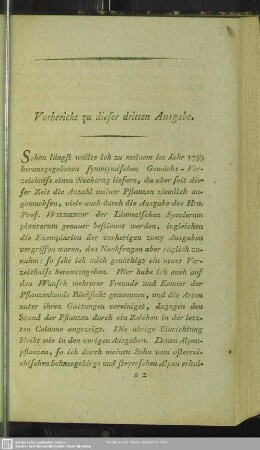 Vorbericht zu dieser dritten Ausgabe.
Schon längſt wollte ich zu meinem im Jahr 1789
herausgegebenen ſynonymiſchen Gewächs-Ver-
zeichniſse einen Nachtrag liefern, da aber ſeit die-
ſer Zeit die Anzahl meiner Pflanzen ziemlich an-
gewachſen, viele auch durch die Ausgabe des Hrn.
Prof. WILDENOW der Linneeiſchen Specierum
plantarum genauer beſtimmt worden, ingleichen
die Exemplarien der vorherigen zwey Ausgaben
vergriffen waren, das Nachfragen aber täglich zu-
nahm: ſo ſahe ich mich genöthigt ein neues Ver-
zeichniſs herauszugeben. Hier habe ich auch auf
den Wunſch mehrerer Freunde und Kenner der
Pflanzenkunde Rückſicht genommen, und die Arten
unter ihren Gattungen vereiniget, dagegen den
Stand der Pflanzen durch ein Zeichen in der letz-
ten Colonne angezeigt. Die übrige Einrichtung
bleibt wie in den vorigen Ausgaben. Denen Alpen-
pflanzen, ſo ich durch meinen Sohn vom öſterrei-
chiſchen Schneegebirge und ſteyerſchen Alpen erhal-
a 2